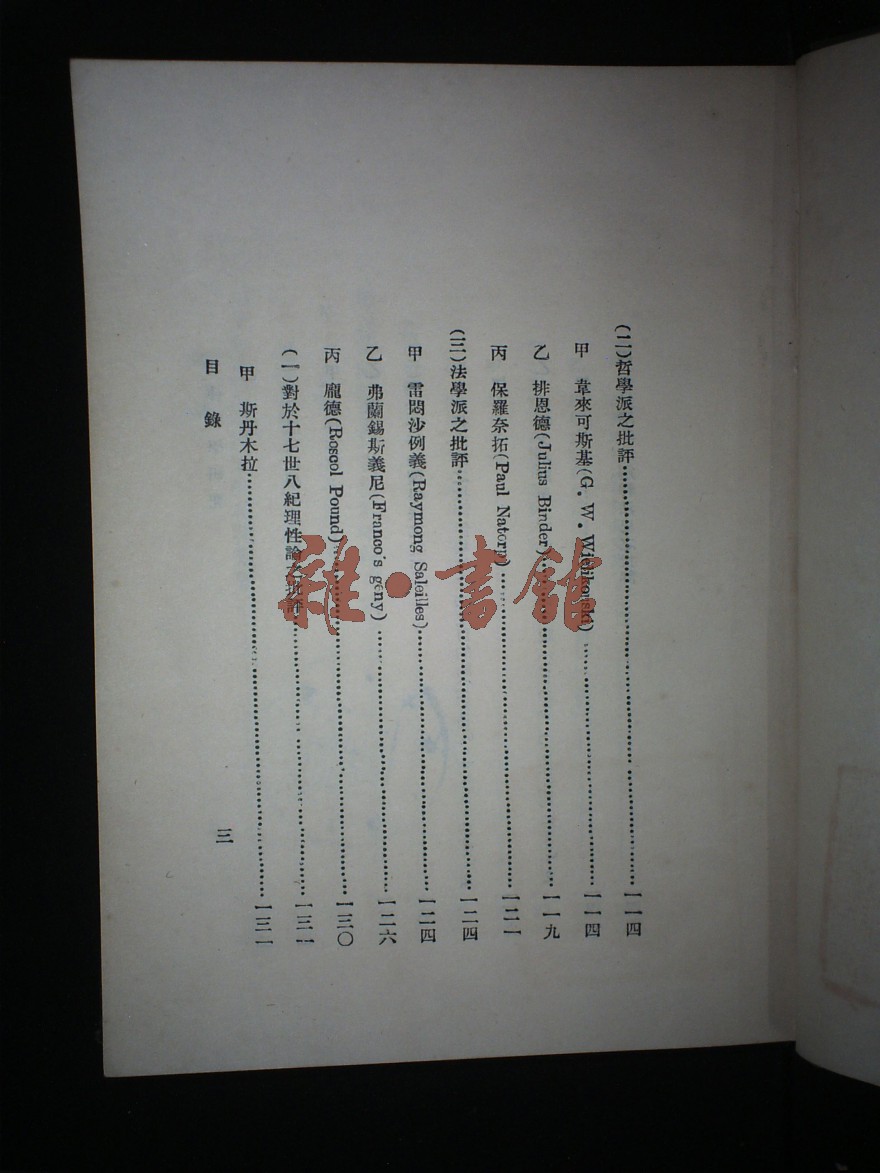 (二)哲學派之批評……………………一一四
甲 韋來可斯基(G. W. Wielikowski)……………………一一四
乙 排恩德(Julius Binder)……………………一一九
丙 保羅奈拓(Paul Natorp)……………………一二一
(三)法學派之批評……………………一二四
甲 雷悶沙例義(Raymong Saleilles)……………………一二四
乙 弗蘭錫斯義尼(Franco's geny)……………………一二六
丙 龐德(Roscol Pound)……………………一三〇
(一)對於十七世八紀理性論之批評……………………一三一
甲 斯丹木拉……………………一三一
目錄 三
雜·書館